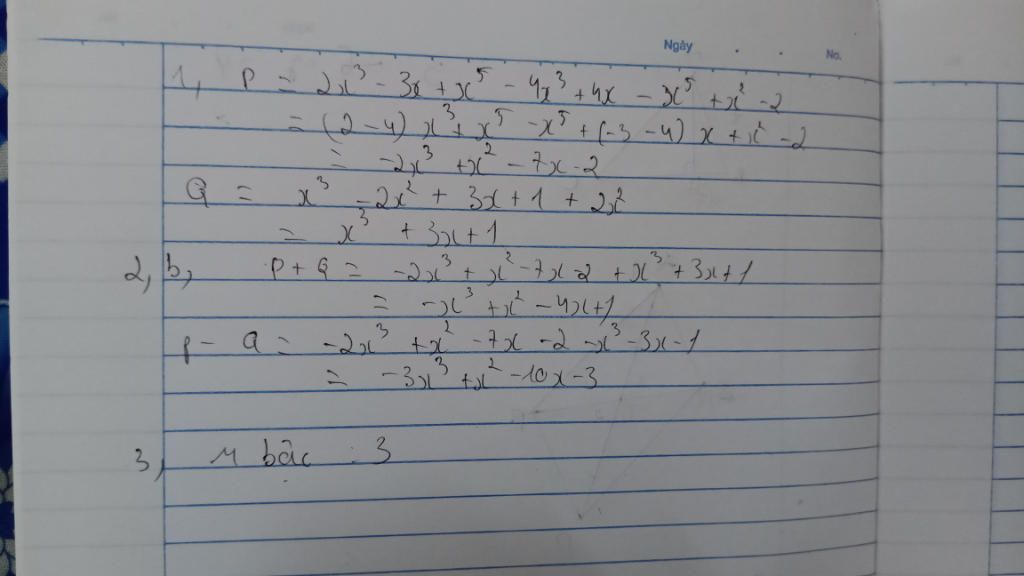 Ngày
No.
1, P = 2x³ - 3x + x⁵ - 4x³ + 4x - 3x⁵ + x² - 2
= (2 - 4) x³ + x⁵ - x⁵ + (-3 - 4) x + x² - 2
= -2x³ + x² - 7x - 2
Q = x³ - 2x² + 3x + 1 + 2x²
= x³ + 3x + 1
2, b, P + Q = -2x³ + x² - 7x - 2 + x³ + 3x + 1
= -x³ + x² - 4x + 1
P - Q = -2x³ + x² - 7x - 2 - x³ - 3x - 1
= -3x³ + x² - 10x - 3
3, M bậc : 3